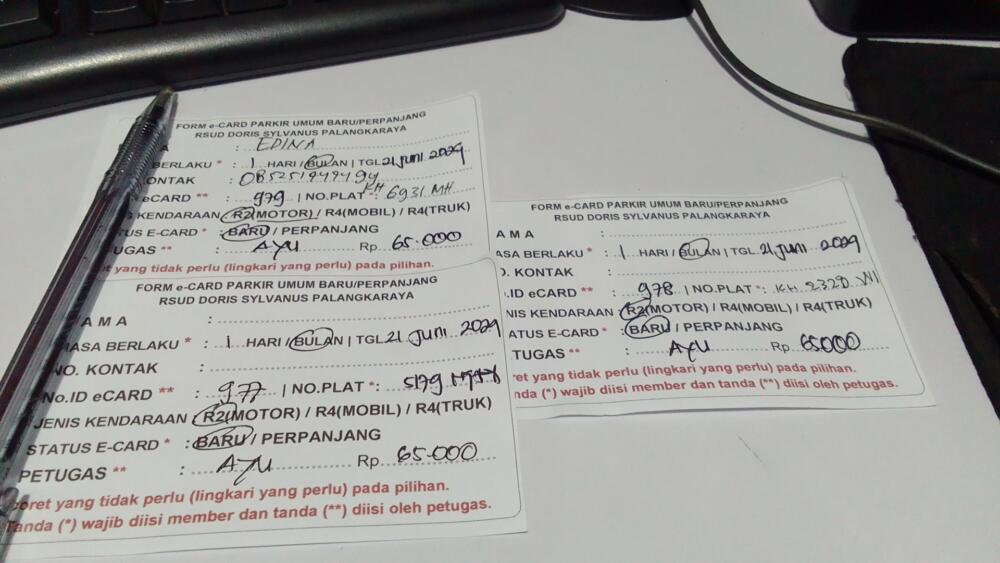 FORM e-CARD PARKIR UMUM BARU/PERPANJANG
RSUD DORIS SYLVANUS PALANGKARAYA
A : EDINA
BERLAKU * : 1 HARI / BULAN | TGL 21 Juni 2029
ONTAK :
eCARD ** : 979 | NO.PLAT *: KH 6931 MH
KENDARAAN : R2(MOTOR) / R4(MOBIL) / R4(TRUK)
TUS E-CARD * : BARU / PERPANJANG
UGAS ** : AYU Rp 65.000
et yang tidak perlu (lingkari yang perlu) pada pilihan.
FORM e-CARD PARKIR UMUM BARU/PERPANJANG
RSUD DORIS SYLVANUS PALANGKARAYA
A M A :
ASA BERLAKU * : 1 HARI / BULAN | TGL 21 Juni 2029
O. KONTAK :
.ID eCARD ** : 978 | NO.PLAT *: KH
NIS KENDARAAN : R2(MOTOR) / R4(MOBIL) / R4(TRUK)
TATUS E-CARD * : BARU / PERPANJANG
TUGAS ** : AYU Rp 65000
ret yang tidak perlu (lingkari yang perlu) pada pilihan.
nda (*) wajib diisi member dan tanda (**) diisi oleh petugas.
FORM e-CARD PARKIR UMUM BARU/PERPANJANG
RSUD DORIS SYLVANUS PALANGKARAYA
A M A :
ASA BERLAKU * : 1 HARI / BULAN | TGL 21 Juni 2029
NO. KONTAK :
No.ID eCARD ** : 977 | NO.PLAT *: 5179
JENIS KENDARAAN : R2(MOTOR) / R4(MOBIL) / R4(TRUK)
STATUS E-CARD * : BARU / PERPANJANG
PETUGAS ** : AYU Rp 65.000
oret yang tidak perlu (lingkari yang perlu) pada pilihan.
Tanda (*) wajib diisi member dan tanda (**) diisi oleh petugas.